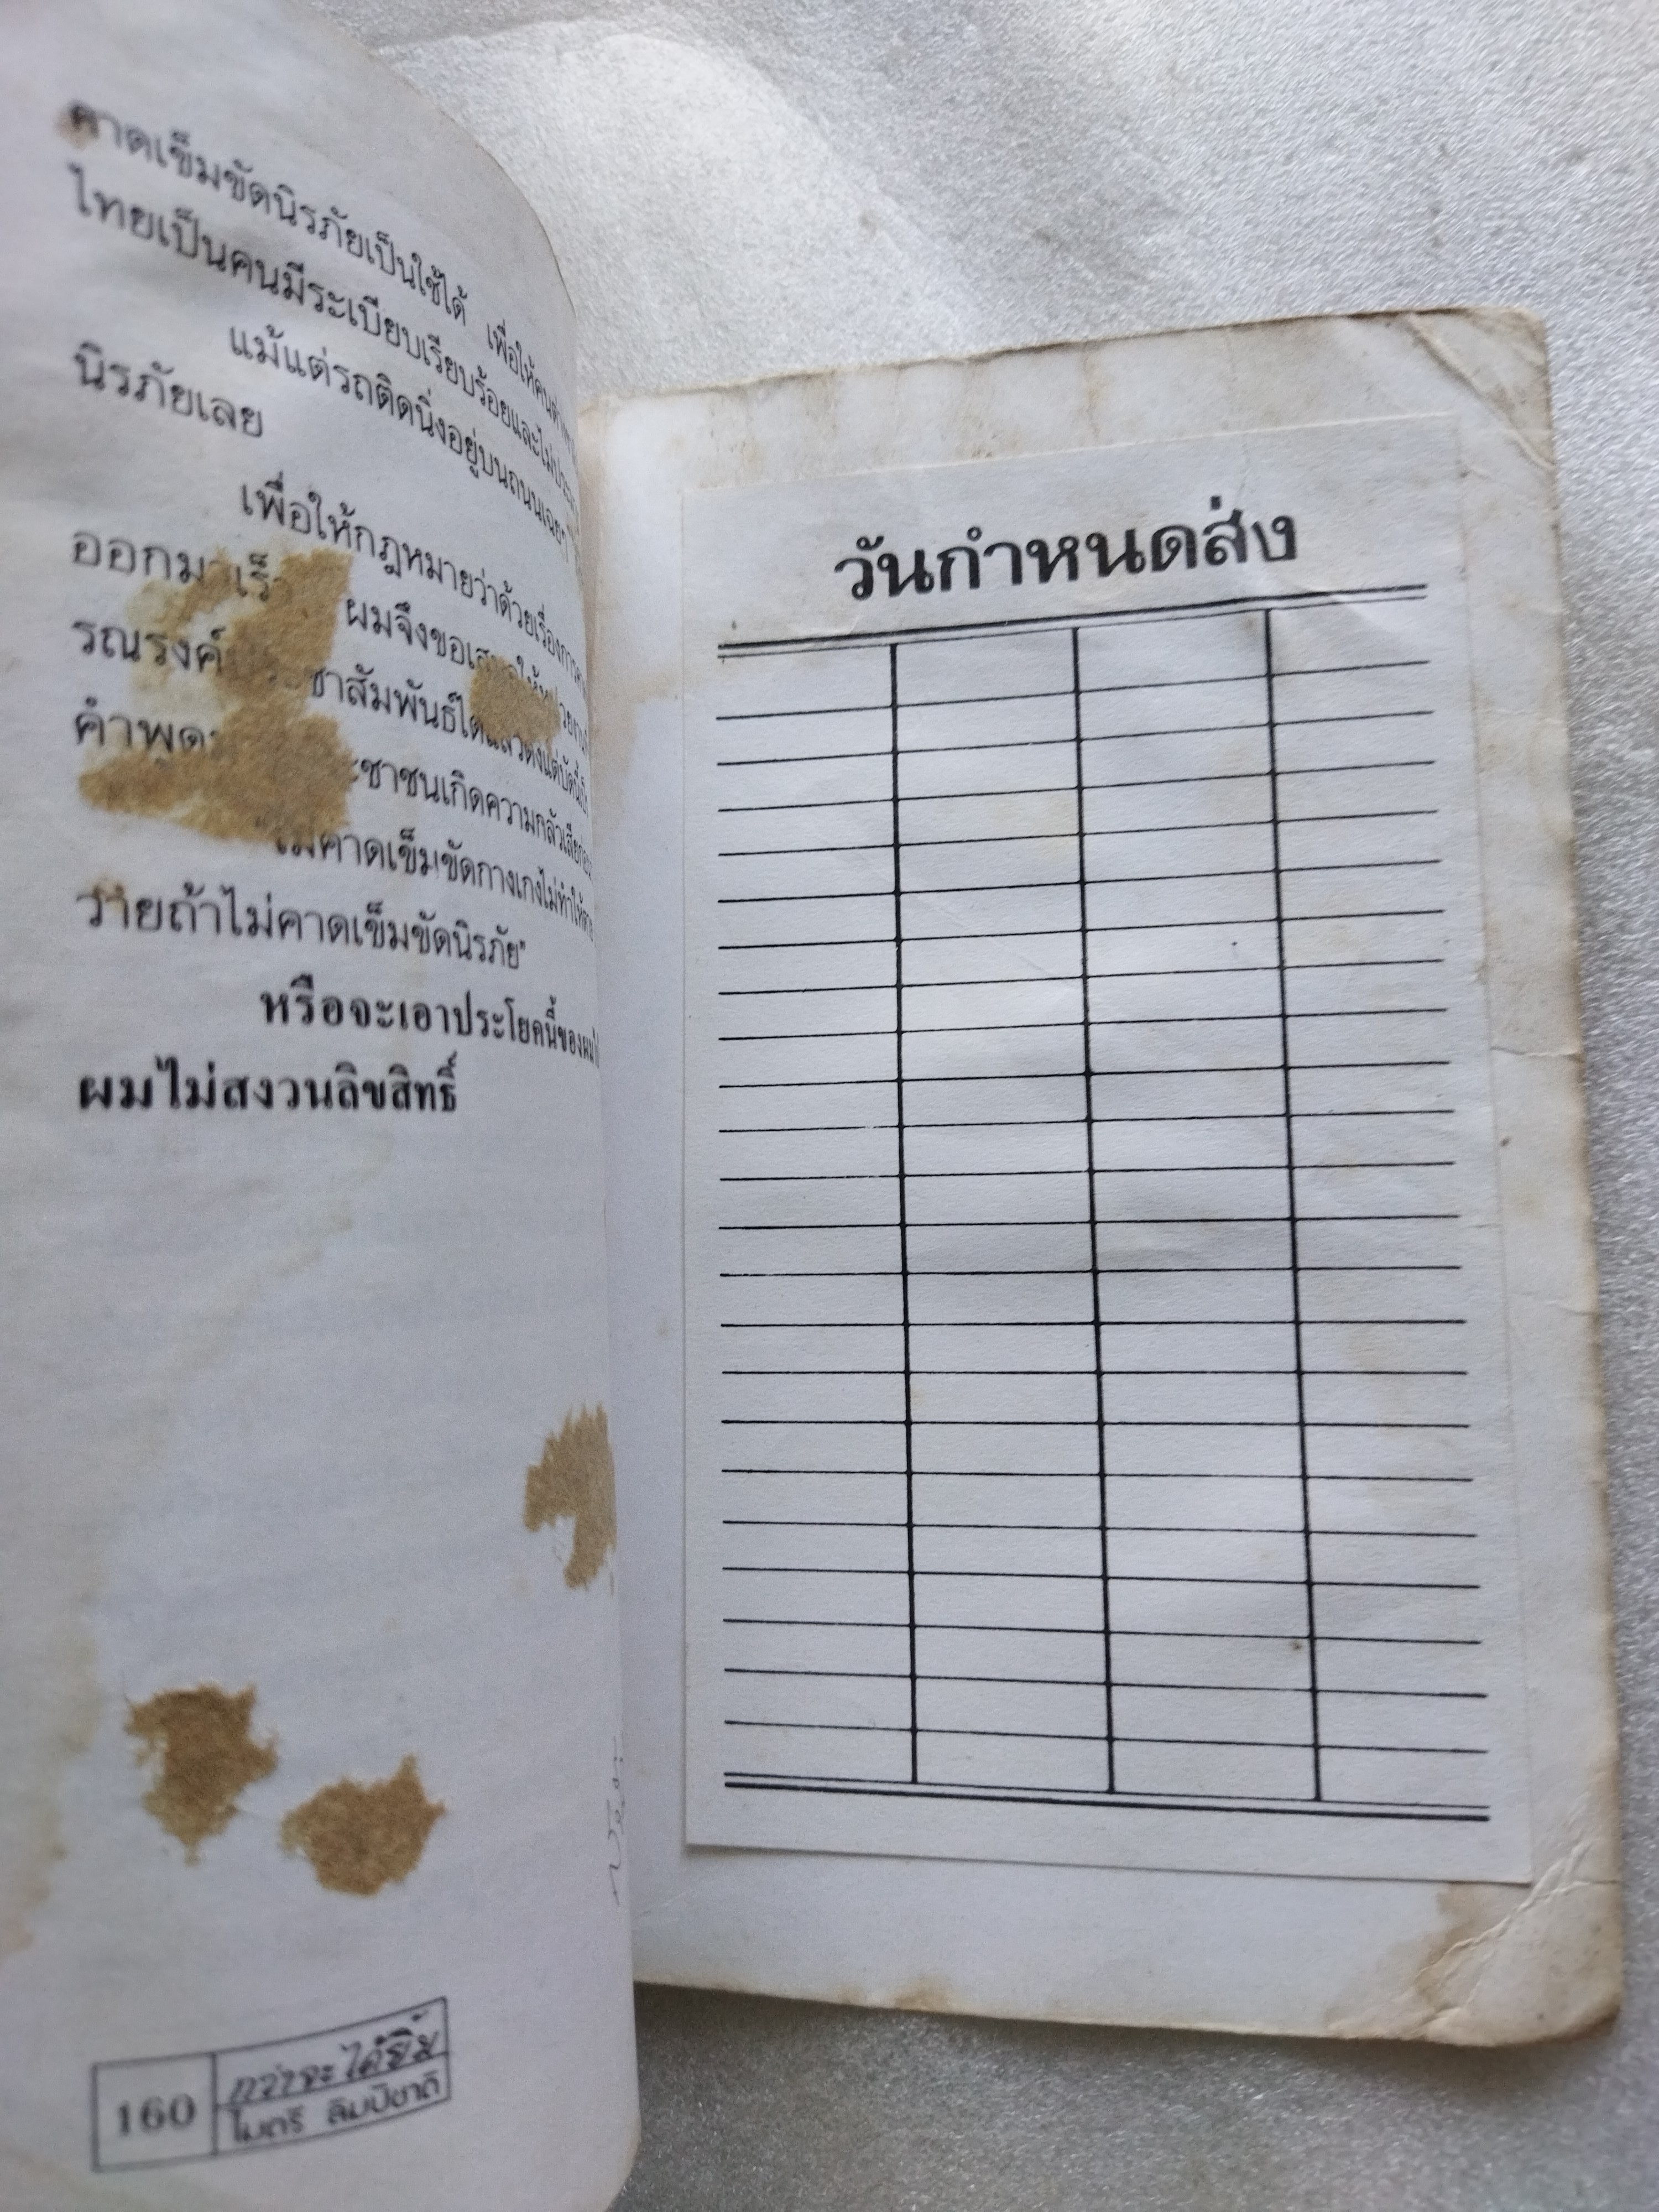 คาดเข็มขัดนิรภัยเป็นใช้ได้ เพื่อให้คน
ไทยเป็นคนมีระเบียบเรียบร้อยและไม่
แม้แต่รถติดนิ่งอยู่บนถนนเฉยๆ
นิรภัยเลย
เพื่อให้กฎหมายว่าด้วยเรื่องการ
ออกมาเร็ว ผมจึงขอ
รณรงค์ประชาสัมพันธ์ได้แล้วตั้งแต่บัดนี้
ประชาชนเกิดความกลัวเสียก่อน
ไม่คาดเข็มขัดกางเกงไม่ทำให้ตาย
วายถ้าไม่คาดเข็มขัดนิรภัย"
หรือจะเอาประโยคนี้ของผม
ผมไม่สงวนลิขสิทธิ์
160
กว่าจะได้ยิ้ม
ไมตรี ลิมปิชาติ
วันกำหนดส่ง